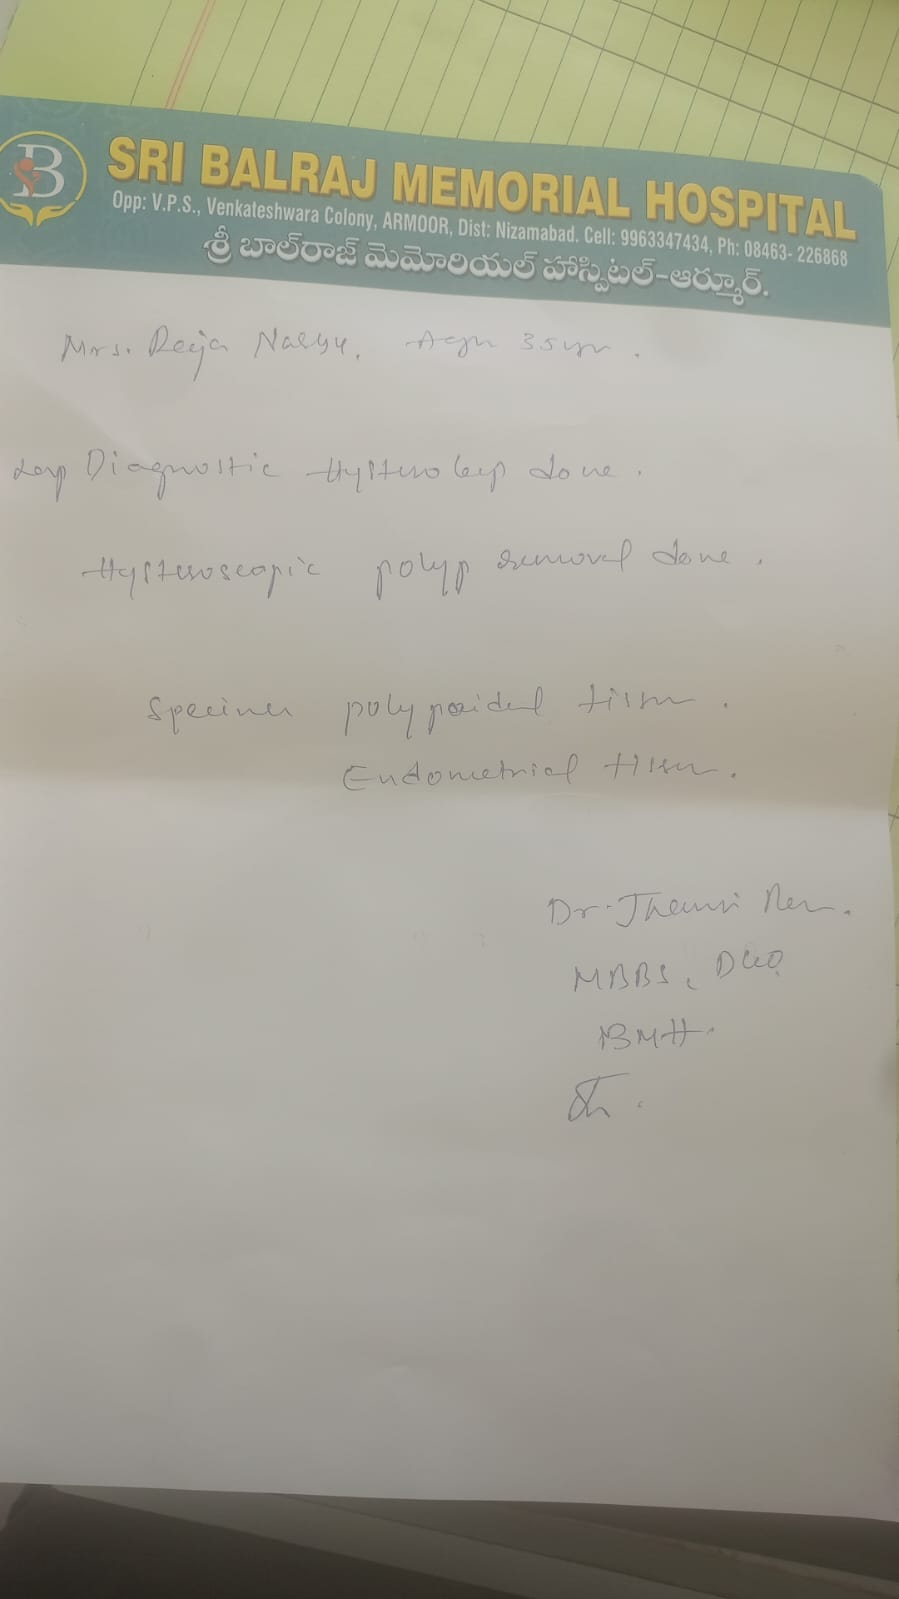 B
SRI BALRAJ MEMORIAL HOSPITAL
Opp: V.P.S., Venkateshwara Colony, ARMOOR, Dist: Nizamabad. Cell: 9963347434, Ph: 08463- 226868
శ్రీ బాల్‌రాజ్ మెమోరియల్ హాస్పిటల్-ఆర్మూర్.
Mrs. 35yrs.
Lap Diagnostic Hystero lap done.
Hysteroscopic polyp removal done.
Specimen polypoidal tissue.
Endometrial tissue.
Dr.
MBBS, DGO
BMH.